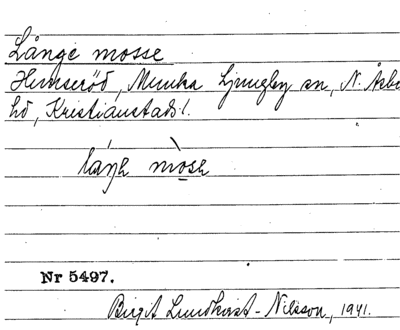 Långe mosse
Hemseröd, Munka Ljungby sn, N. Åsbo
hd, Kristianstads l.
mose
Nr 5497.
Birgit Lundkvist-Nilsson, 1941.